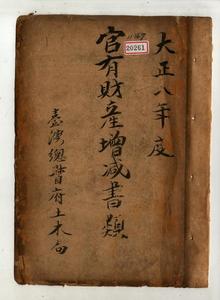 大正八年度
官有財産增減書類
臺灣總督府土木局
20261